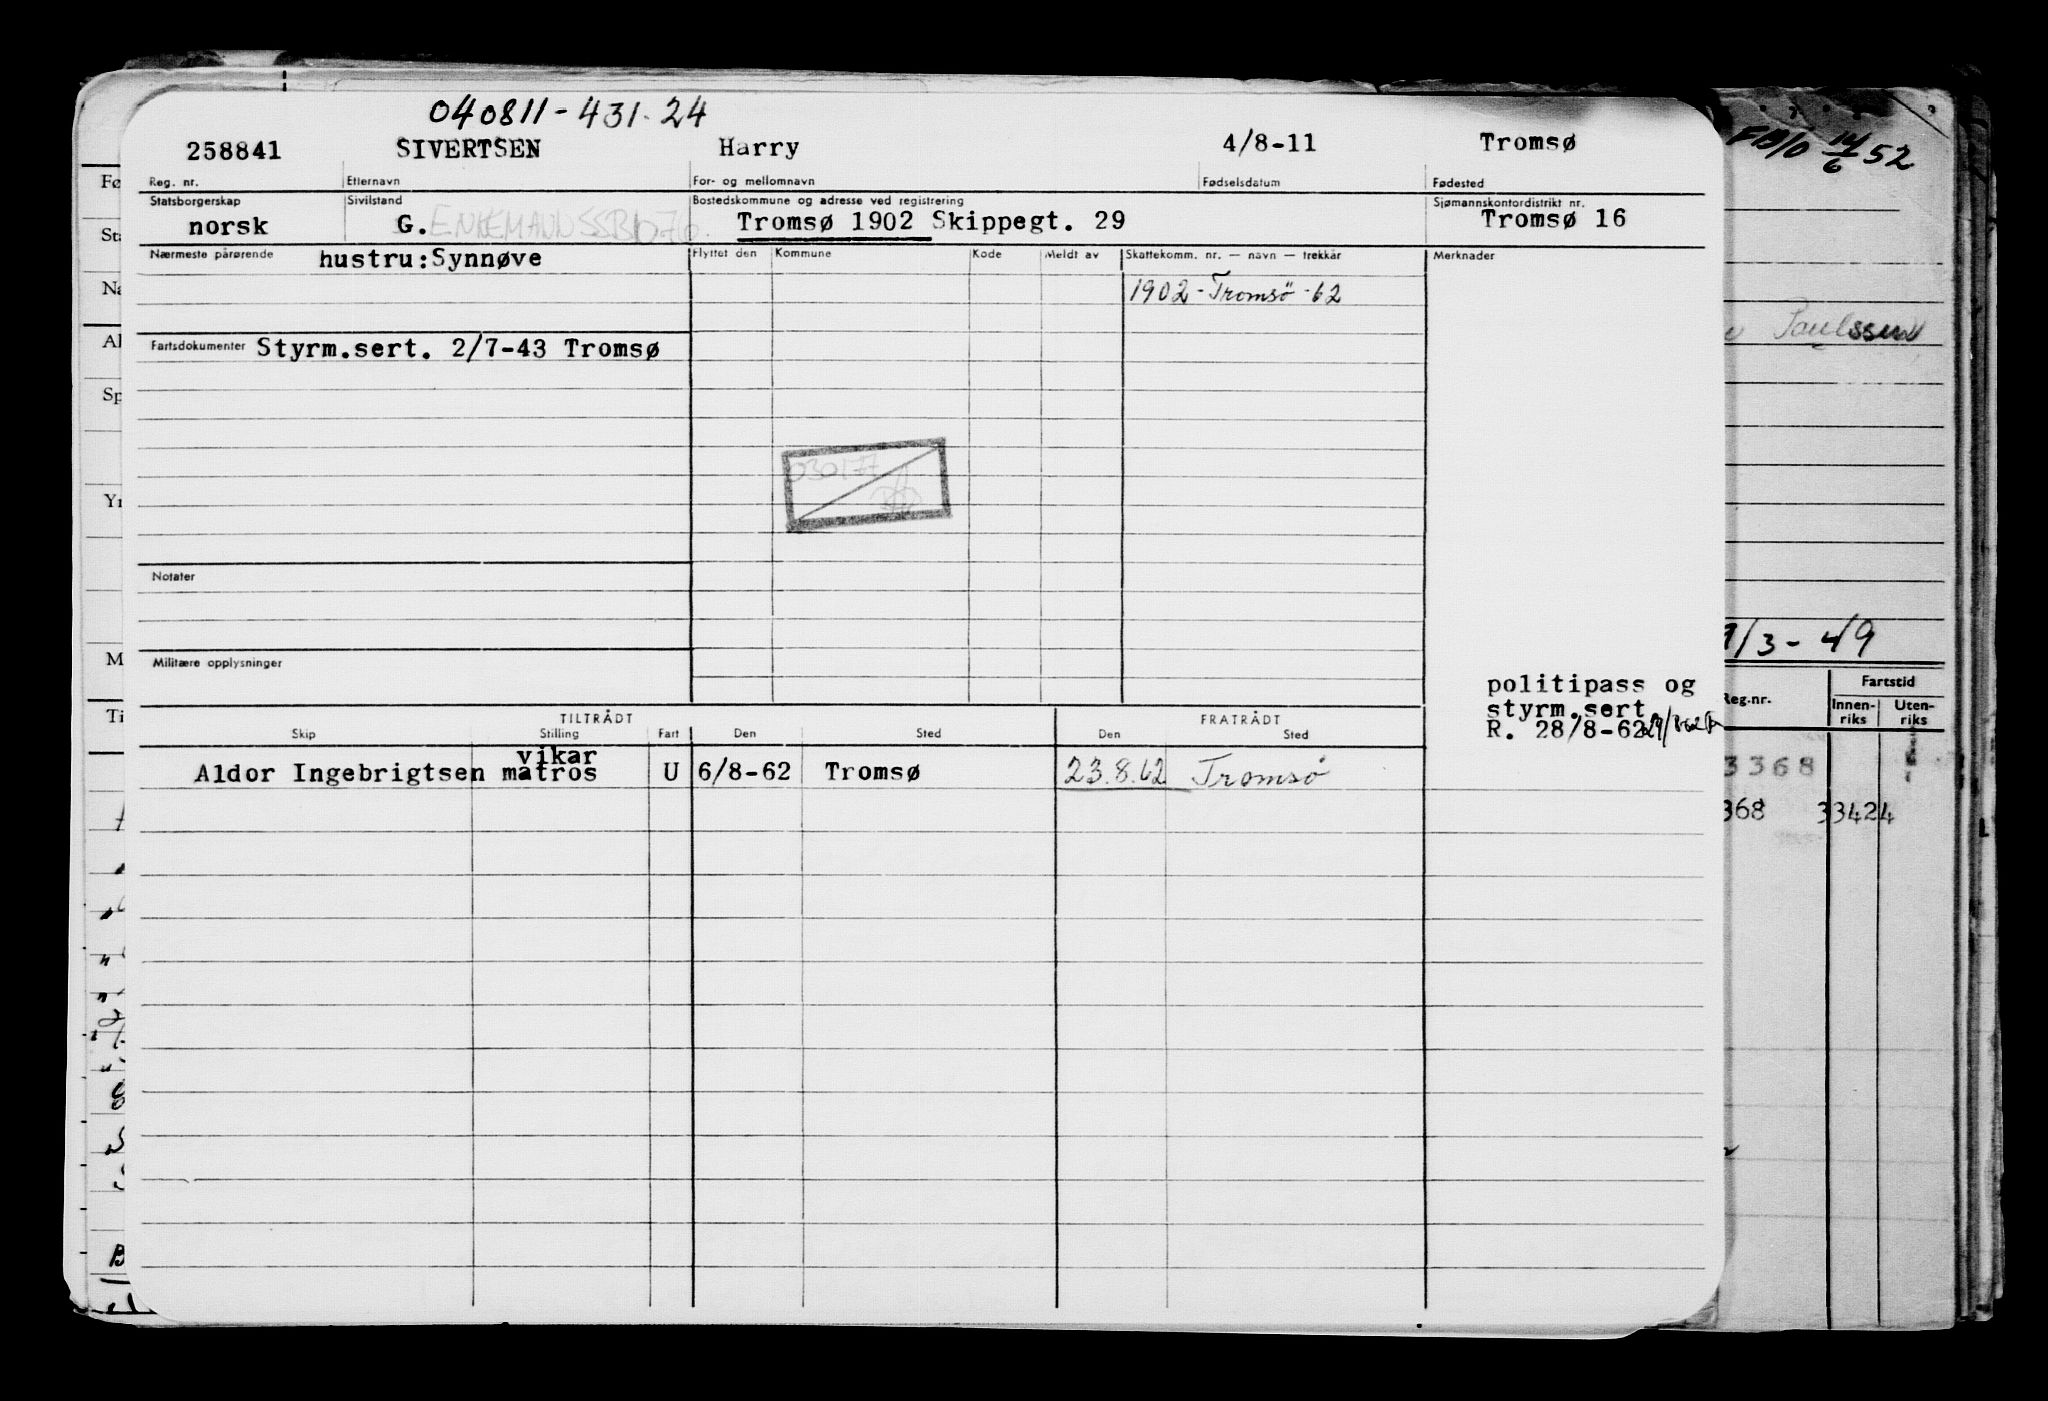 040811-431.24
258841 SIVERTSEN Harry 4/8-11 Tromsø
Reg. nr. Etternavn For- og mellomnavn Fødselsdatum Fødested
Statsborgerskap Sivilstand Bostedskommune og adresse ved registrering Sjømannskontordistrikt nr.
norsk G. Tromsø 1902 Skippegt. 29 Tromsø 16
Nærmeste pårørende hustru:Synnøve Flyttet den Kommune Kode Meldt av Skattekomm. nr. — navn — trekkår Merknader
1902 - Tromsö - 62
Fartsdokumenter Styrm.sert. 2/7-43 Tromsø
030177
Notater
Militære opplysninger
politipass og
styrm.sert
R. 28/8-62
TILTRÅDT FRATRÅDT
Skip Stilling Fart Den Sted Den Sted
vikar
Aldor Ingebrigtsen matros U 6/8-62 Tromsø 23.8.62 Tromsø
14/6 52
Paulssen
/3-49
Reg.nr. Fartstid
Innen-
riks Uten-
riks
3368
368 33424
Fø
Sta
Na
Al
Sp
Yr
M
Ti
B